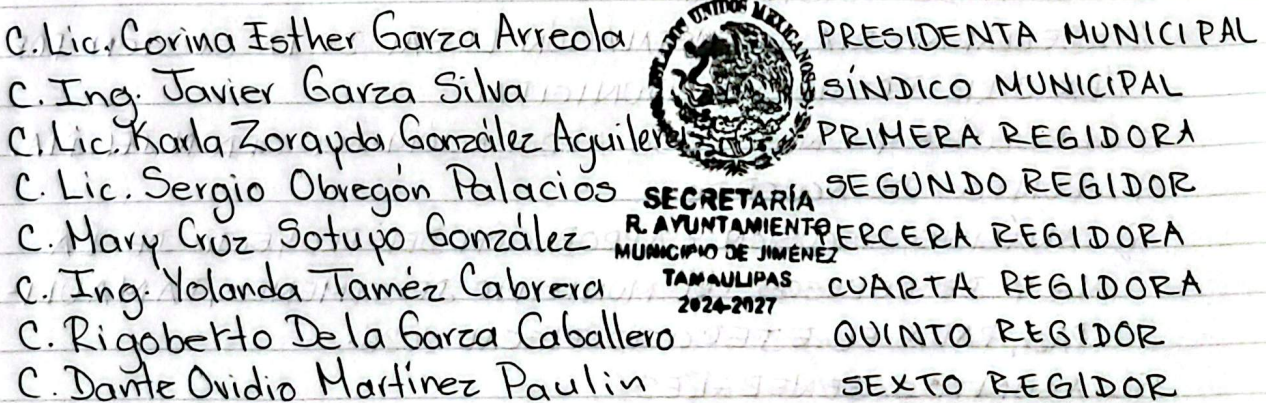 C. Lic. Corina Esther Garza Arreola PRESIDENTA MUNICIPAL
C. Ing. Javier Garza Silva SÍNDICO MUNICIPAL
C. Lic. Karla Zorayda González Aguilera PRIMERA REGIDORA
C. Lic. Sergio Obregón Palacios SEGUNDO REGIDOR
C. Mary Cruz Sotuyo González TERCERA REGIDORA
C. Ing. Yolanda Taméz Cabrera CUARTA REGIDORA
C. Rigoberto De la Garza Caballero QUINTO REGIDOR
C. Dante Ovidio Martínez Paulin SEXTO REGIDOR
ESTADOS UNIDOS MEXICANOS
SECRETARÍA
R. AYUNTAMIENTO
MUNICIPIO DE JIMÉNEZ
TAMAULIPAS
2024-2027